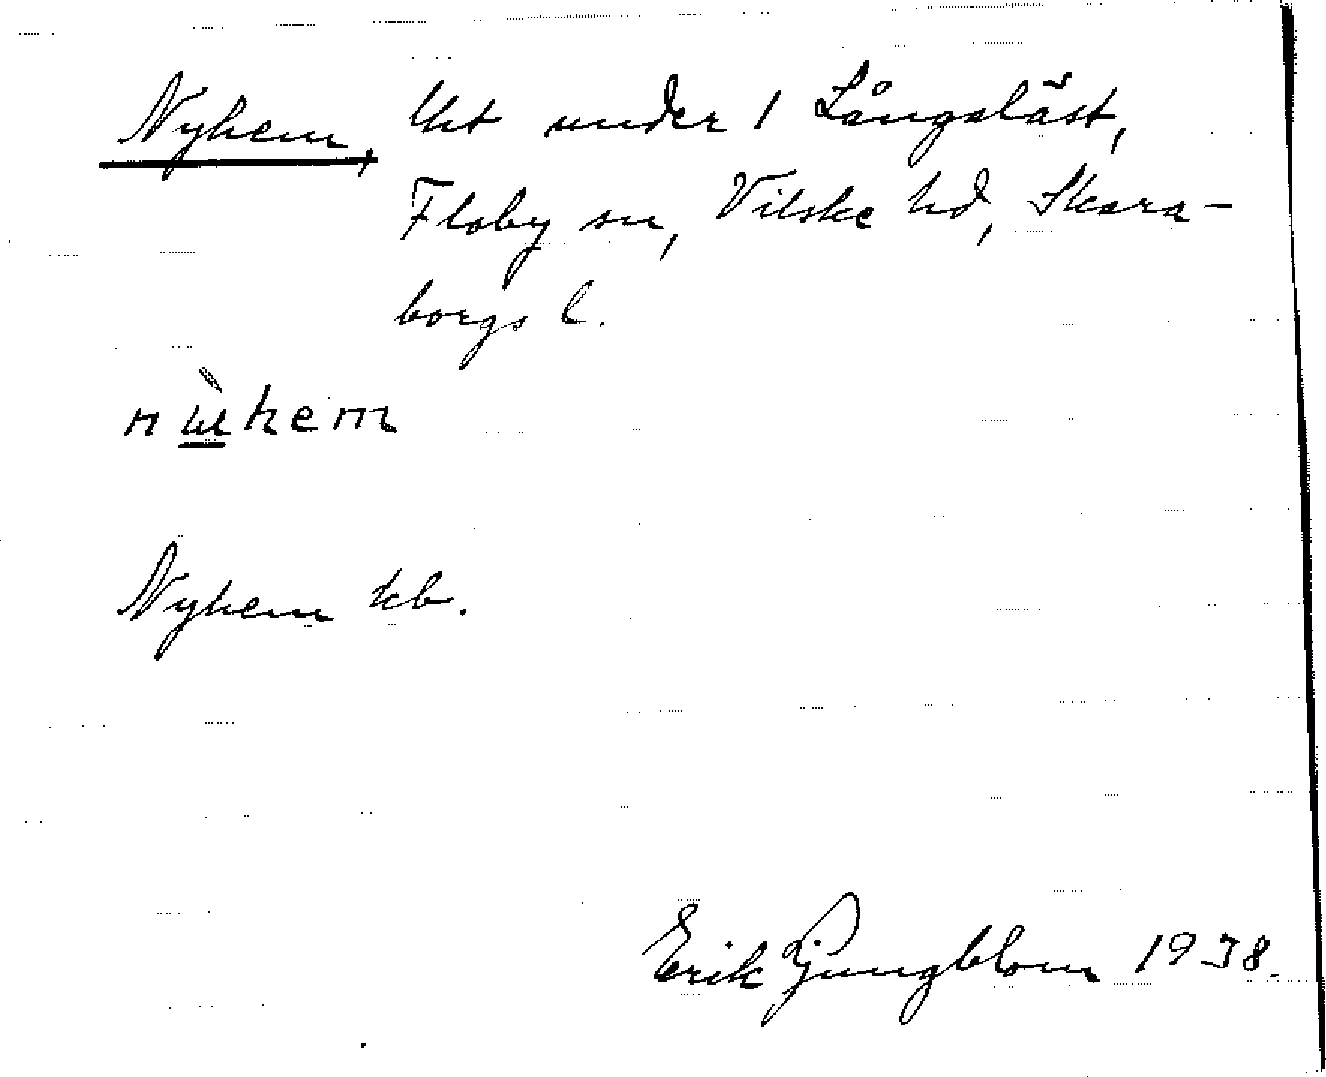 Nyhem, Uht under 1 Långaläst,
Floby sn, Vilske hd, Skara-
borgs l.
nʉ̀hem
Nyhem kb.
Erik Ljungblom 1938.